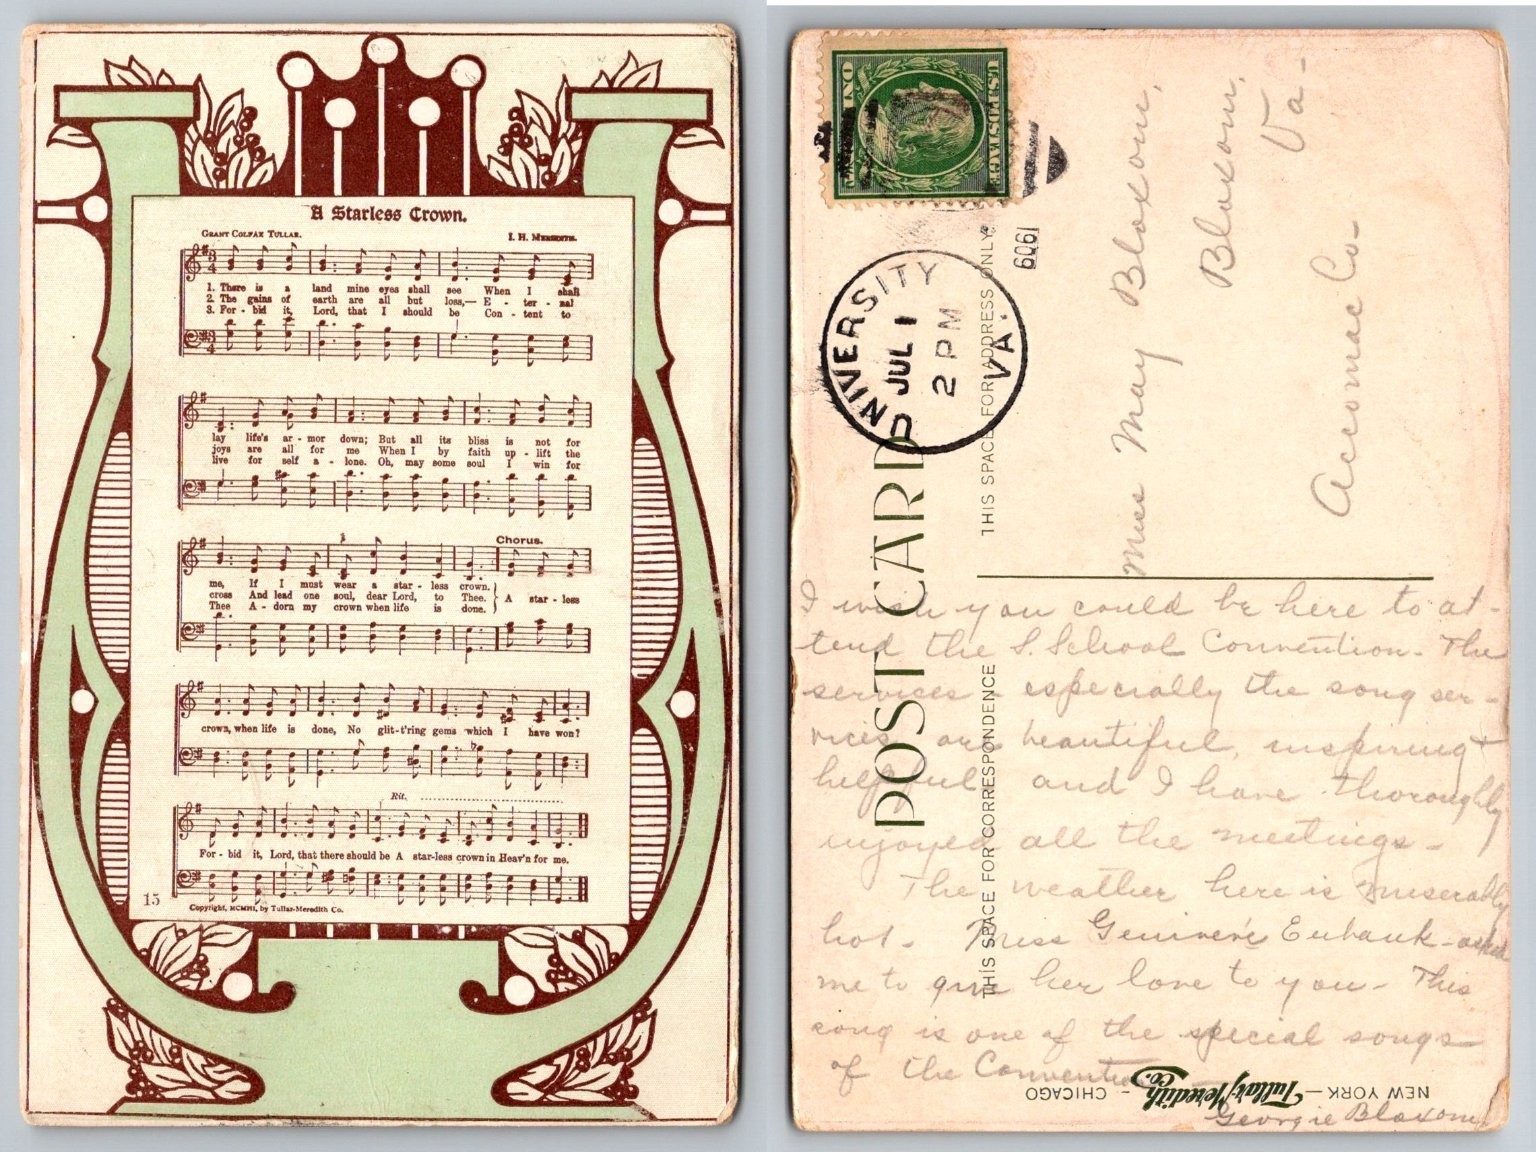 A Starless Crown.
GRANT COLFAX TULLAR. I. H. MEREDITH.
1. There is a land mine eyes shall see When I shall
2. The gains of earth are all but loss,— E - ter - nal
3. For - bid it, Lord, that I should be Con - tent to
lay life's ar - mor down; But all its bliss is not for
joys are all for me When I by faith up - lift the
live for self a - lone. Oh, may some soul I win for
Chorus.
me, If I must wear a star - less crown.
cross And lead one soul, dear Lord, to Thee. } A star - less
Thee A - dorn my crown when life is done.
crown, when life is done, No glit-t'ring gems which I have won?
Rit.
For - bid it, Lord, that there should be A star-less crown in Heav'n for me.
15
Copyright, MCMIII, by Tullar-Meredith Co.
U.S. POSTAGE
ON
UNIVERSITY
JUL 1
2 PM
VA.
1909
POST CARD
THIS SPACE FOR ADDRESS ONLY.
THIS SPACE FOR CORRESPONDENCE
Miss May Bloxom,
Bloxom,
Accomac Co-
Va-
I wish you could be here to at-
tend the S. School Convention- The
services - especially the song ser-
vices, are beautiful, inspiring +
helpful and I have thoroughly
enjoyed all the meetings-
The weather here is miserably
hot. Miss Eubank- asked
me to give her love to you- This
song is one of the special songs
of the Convention
Georgie Bloxom
NEW YORK — Tullar-Meredith Co. - CHICAGO